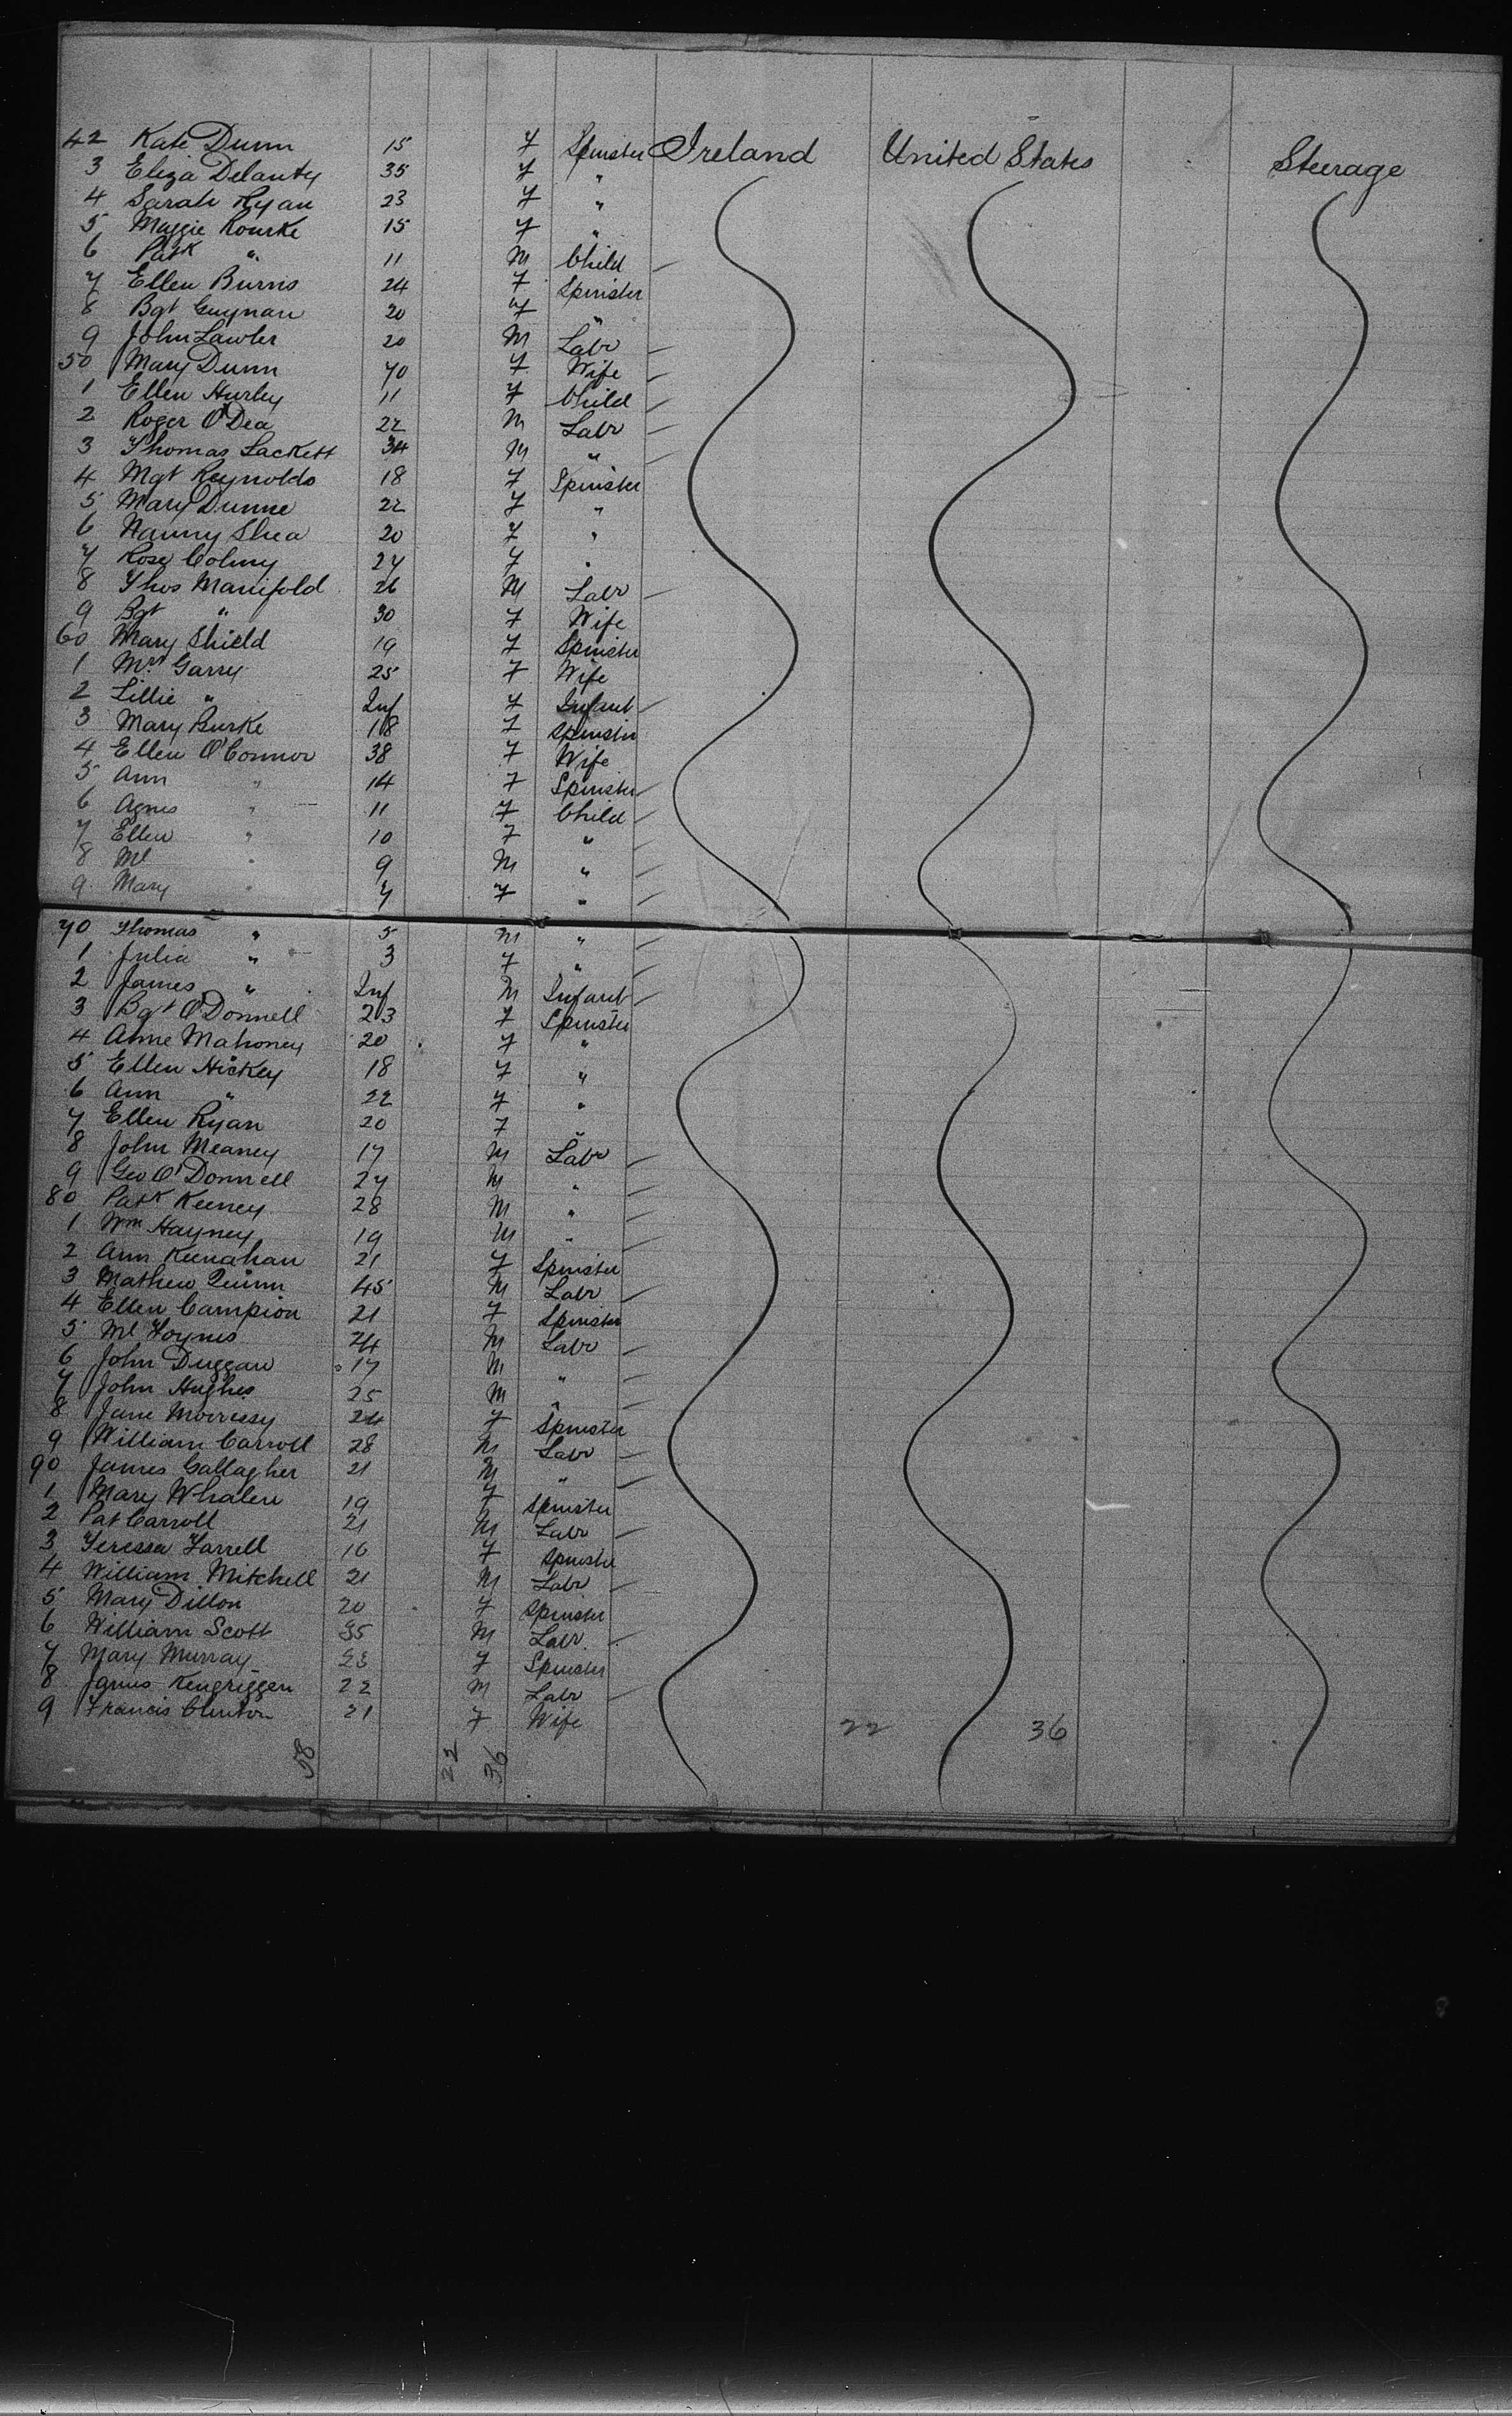 42 Kate Dunn 15 F Spinster Ireland United States Steerage
3 Eliza Delanty 35 F "
4 Sarah Ryan 23 F "
5 Maggie Rourke 15 F "
6 Patk " 11 M Child
7 Ellen Burns 24 F Spinster
8 Bgt Guynan 20 F "
9 John Lawler 20 M Labr
50 Mary Dunn 40 F Wife
1 Ellen Hurley 11 F Child
2 Roger O'Dea 22 M Labr
3 Thomas Sackett 34 M "
4 Mgt Reynolds 18 F Spinster
5 Mary Dunne 22 F "
6 Nanny Shea 20 F "
7 Rose 24 F "
8 Thos Manifold 26 M Labr
9 Bgt " 30 F Wife
60 Mary Shield 19 F Spinster
1 Mrs Garry 25 F Wife
2 Lillie " Inf F Infant
3 Mary Burke 18 F Spinster
4 Ellen O'Connor 38 F Wife
5 Ann " 14 F Spinster
6 Agnes " 11 F Child
7 Ellen " 10 F "
8 Ml " 9 M "
9 Mary " 7 F "
70 Thomas " 5 M "
1 Julia " 3 F "
2 James " Inf M Infant
3 Bgt O'Donnell 23 F Spinster
4 Anne Mahoney 20 F "
5 Ellen Hickey 18 F "
6 Ann " 22 F "
7 Ellen Ryan 20 F "
8 John Meaney 17 M Labr
9 Geo O'Donnell 27 M "
80 Patk Keeney 28 M "
1 Wm Hayney 19 M "
2 Ann Keenahan 21 F Spinster
3 Mathew Quinn 45 M Labr
4 Ellen Campion 21 F Spinster
5 Ml Hoynes 24 M Labr
6 John Duggan 17 M "
7 John Hughes 25 M "
8 Jane Morrissy 24 F Spinster
9 William Carroll 28 M Labr
90 James Gallagher 21 M "
1 Mary Whalen 19 F Spinster
2 Pat Carroll 21 M Labr
3 Teressa Farrell 16 F Spinster
4 William Mitchell 21 M Labr
5 Mary Dillon 20 F Spinster
6 William Scott 35 M Labr
7 Mary Murray 23 F Spinster
8 James 22 M Labr
9 Francis Clinton 21 F Wife
22 36
58 22 36